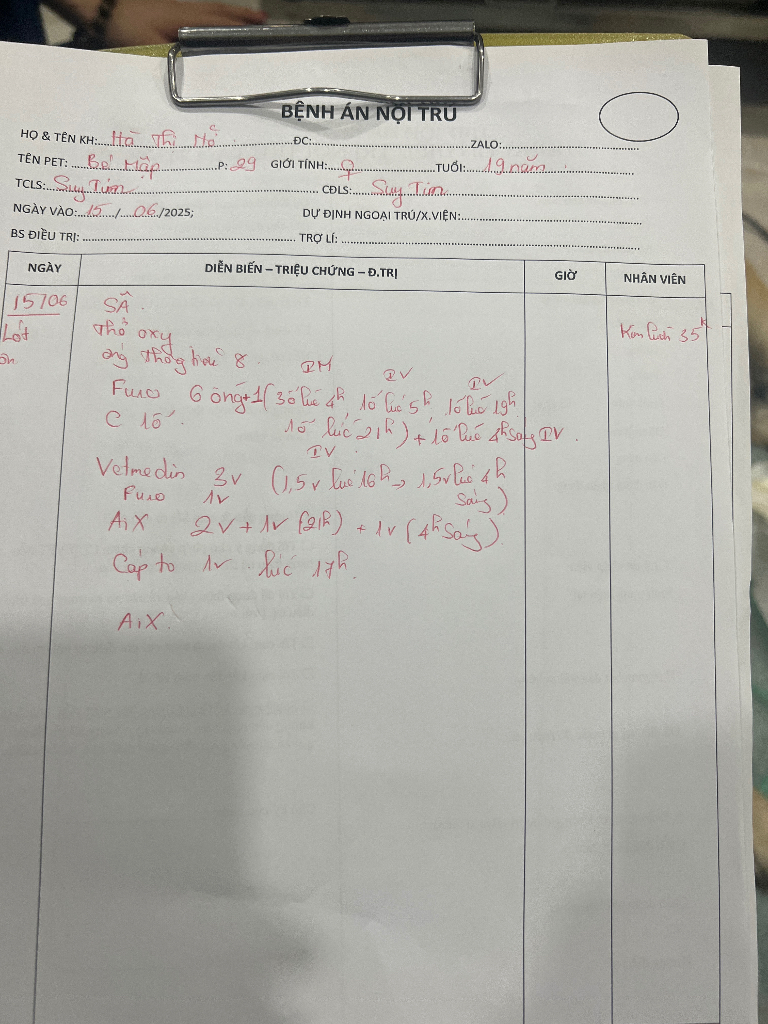 BỆNH ÁN NỘI TRÚ
HỌ & TÊN KH: Hà Thị Nở ĐC: ZALO:
TÊN PET: Bé Mập P: 29 GIỚI TÍNH: ♀ TUỔI: 19 năm
TCLS: Suy Tim CĐLS: Suy Tim
NGÀY VÀO: 15 / 06 /2025; DỰ ĐỊNH NGOẠI TRÚ/X.VIỆN:
BS ĐIỀU TRỊ: TRỢ LÍ:
NGÀY DIỄN BIẾN – TRIỆU CHỨNG – Đ.TRỊ GIỜ NHÂN VIÊN
15/06 SÂ.
Lót Thở oxy Kim luồn 35k
ống thông tiểu 8
IM IV IV
Furo 6 ống+1 (3ố lúc 4h 1ố lúc 5h 1ố lúc 19h
C 1ố 1ố lúc 21h) + 1ố lúc 4h sáng IV.
IV
Vetmedin 3v (1,5v lúc 16h → 1,5v lúc 4h
Furo 1v sáng)
AiX 2v + 1v (21h) + 1v (4h sáng)
Capto 1v lúc 17h.
AiX.